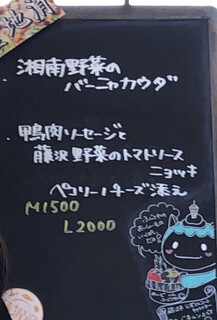 地消
・湘南野菜の
バーニャカウダ
・鴨肉ソーセージと
藤沢野菜のトマトソース
ニョッキ
ペコリーノチーズ添え
M1500
L2000